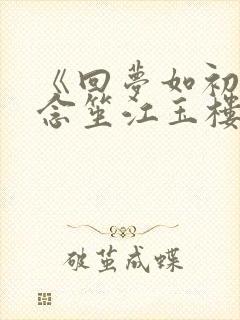 《回梦如初
念笙江玉楼
破茧成蝶